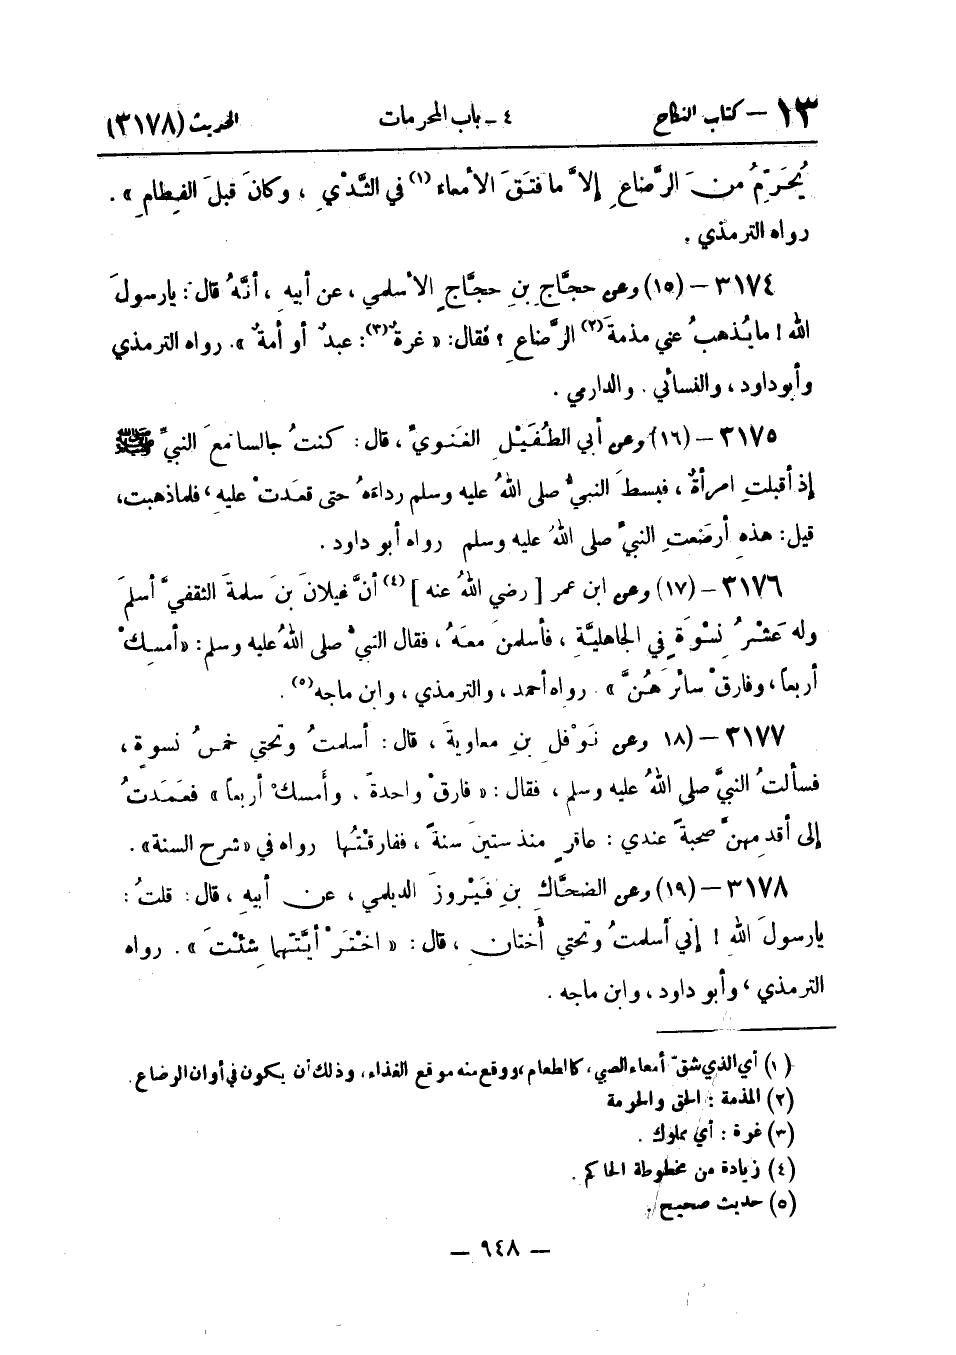 ١٣ – كتاب النكاح ٤ – باب المحرمات الحديث (٣١٧٨)
يُحَرِّمُ منَ الرَّضاعِ إلاَّ ما فتَقَ الأمعاء (١) في الثَّدْيِ ، وكانَ قبلَ الفِطامِ » .
رواه الترمذي .
٣١٧٤ – (١٥) وعن حجَّاجِ بنِ حجَّاجٍ الأسلمي ، عن أبيهِ ، أنَّهُ قال : يارسولَ
الله ! ما يُذهبُ عني مذمةَ (٢) الرَّضاعِ ؟ فقال : « غرةٌ (٣) : عبدٌ أو أمةٌ » . رواه الترمذي
وأبوداود ، والنسائي . والدارمي .
٣١٧٥ – (١٦) وعن أبي الطُفَيْلِ الغَنويِّ ، قال : كنتُ جالسا معَ النبيِّ ﷺ
إذ أقبلتِ امرأةٌ ، فبسطَ النبيُّ صلى اللهُ عليه وسلم رداءَهُ حتى قعَدتْ عليه ، فلما ذهبت،
قيل : هذهِ أرضَعتِ النبيَّ صلى اللهُ عليه وسلم رواه أبو داود .
٣١٧٦ – (١٧) وعن ابن عمر [ رضي اللهُ عنه ] (٤) أنَّ غيلانَ بنَ سلمةَ الثقفيَّ أسلمَ
وله عَشْرُ نِسْوَةٍ في الجاهليَّةِ ، فأسلمنَ معَهُ ، فقال النبيُّ صلى اللهُ عليه وسلم : « أمسِكْ
أربعاً ، وفارقْ سائرَهُنَّ » . رواه أحمد ، والترمذي ، وابن ماجه (٥) .
٣١٧٧ – (١٨ وعن نَوْفلِ بنِ معاويةَ ، قال : أسلمتُ وتحتي خمسُ نسوةٍ ،
فسألتُ النبيَّ صلى اللهُ عليه وسلم ، فقال : « فارقْ واحدةً . وأمسكْ أربعاً » فعَمَدتُ
إلى أقدمِهنَّ صحبةً عندي : عاقرٍ منذ ستينَ سنةً ، ففارقْتُها رواه في « شرح السنة » .
٣١٧٨ – (١٩) وعن الضحَّاكِ بنِ فَيْروزَ الديلمي ، عن أبيهِ ، قال : قلتُ :
يارسولَ اللهِ ! إني أسلمتُ وتحتي أُختان ، قال : « اخْتَرْ أيَّتَهما شِئْتَ » . رواه
الترمذي ، وأبو داود ، وابن ماجه .
(١) أي الذي شقّ أمعاء الصبي ، كالطعام، ووقع منه موقع الغذاء ، وذلك أن يكون في أوان الرضاع .
(٢) المذمة : الحق والحرمة
(٣) غرة : أي مملوك .
(٤) زيادة من مخطوطة الحاكم .
(٥) حديث صحيح .
– ٩٤٨ –